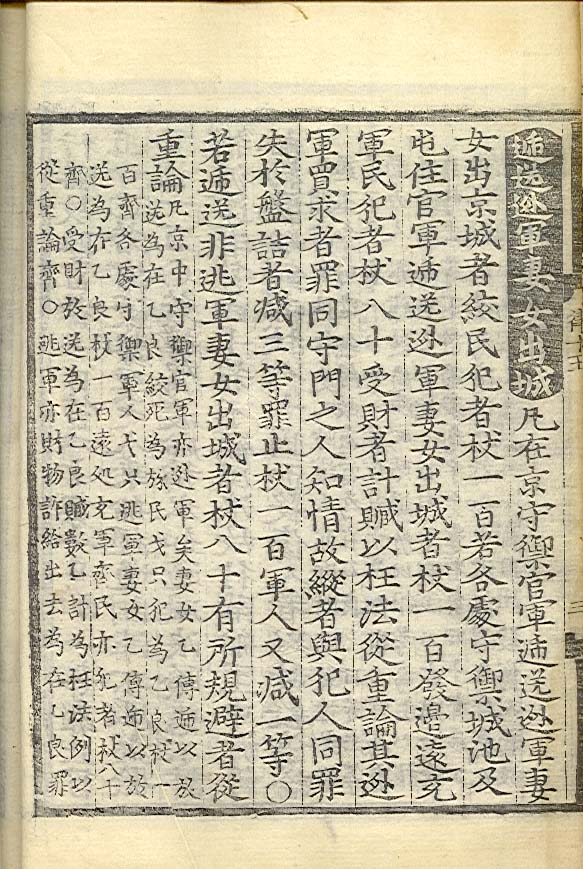 遞送迯軍妻女出城 凡在京守禦官軍遞送迯軍妻
女出京城者絞民犯者杖一百若各處守禦城池及
屯住官軍遞送迯軍妻女出城者杖一百發邊遠充
軍民犯者杖八十受財者計贓以枉法從重論其迯
軍買求者罪同守門之人知情故縱者與犯人同罪
失於盤詰者减三等罪止杖一百軍人又减一等○
若遞送非逃軍妻女出城者杖八十有所規避者從
重論 凡京中守禦官軍亦迯軍矣妻女乙傳遞以放
送為在乙良絞死為旀民戈只犯為乙良杖一
百齊各處守禦軍人戈只逃軍妻女乙傳遞以放
送為在乙良杖一百遠処充軍齊民亦犯者杖八十
齊○受財放送為在乙良贓數乙計為枉法例以
從重論齊○逃軍亦財物許給出去為在乙良罪